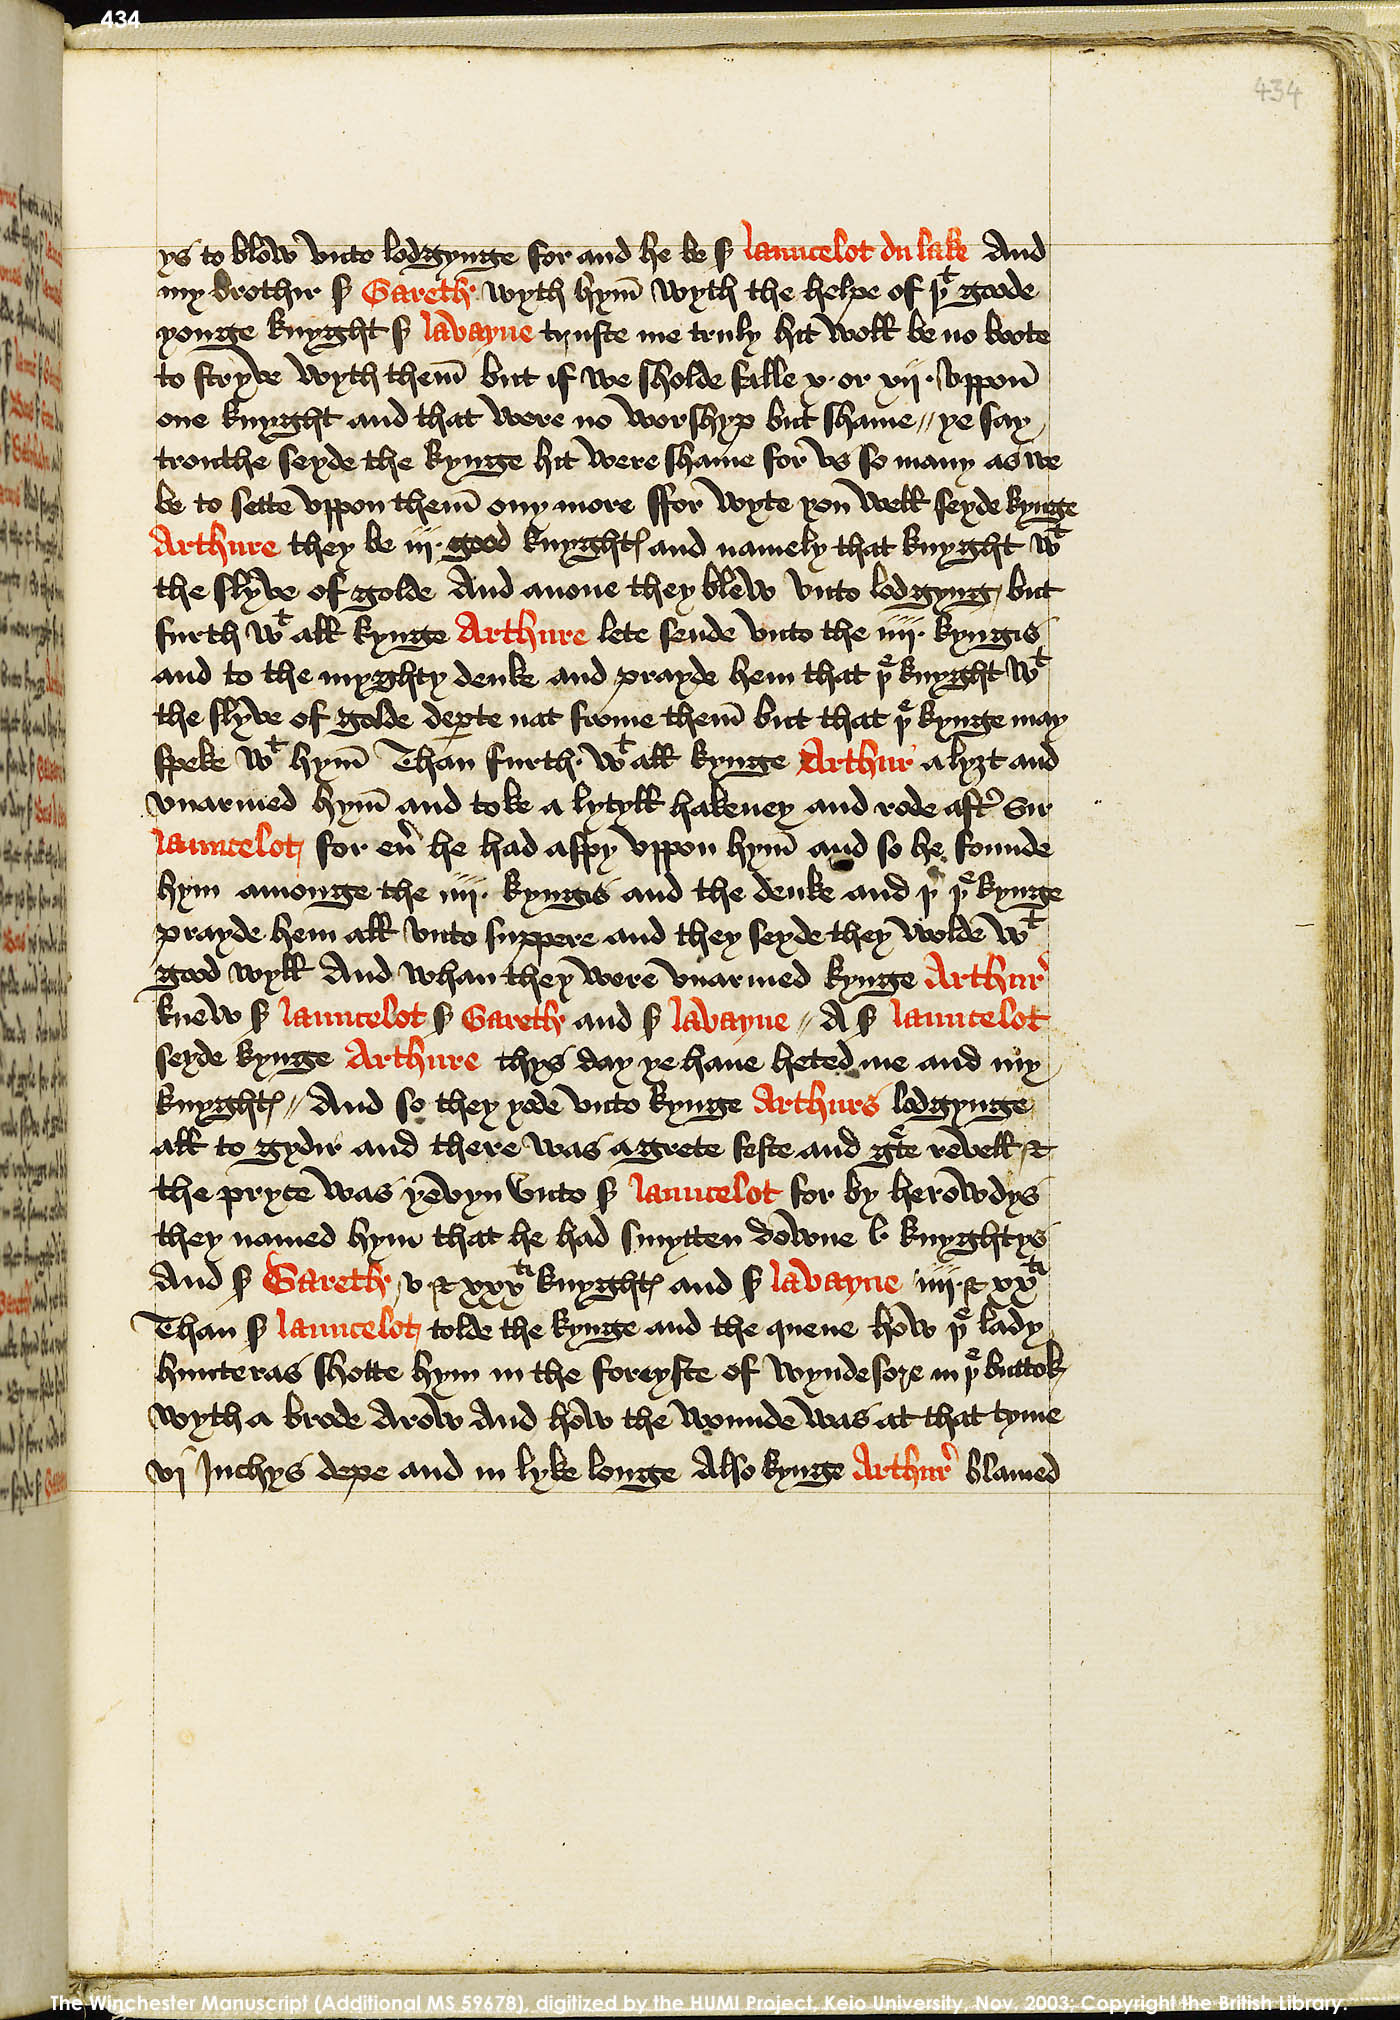 434
434
ys to blow vnto lodgynge for and he be ẜ launcelot du lake And
my brothir ẜ Gareth wyth hym̄ wyth the helpe of þͭ goode
yonge knyght ẜ lavayne truste me truly hit woll be no boote
to stryve wyth them̄ but if we sholde falle x· or xij· vppon̄
one knyght and that were no worshyp but shame // ye say
trouthe seyde the kynge hit were shame for vs so many as we
be to sette vppon them̄ ony more ffor wyte you well seyde kynge
Arthure they be iij· good knyghtꝭ and namely that knyght wͭ
the slyve of golde And anone they blew vnto lodgyng but
furth wͭ all kynge Arthure lete sende vnto the iiij· kyngis
and to the myghty deuke and prayde hem that þͤ knyght wͭ
the slyve of golde deꝑte nat frome them̄ but that þͤ kynge may
speke wͭ hym̄ Than furth· wͭ all kynge Arthur alyȝt and
vnarmed hym̄ and toke a lytyll hakeney and rode aftͬ Sir
launcelot for eu̾ he had a spy vppon hym̄ and so he founde
hym amonge the iiij· kyngis and the deuke and þͬ þͤ kynge
prayde hem all vnto suppere and they seyde they wolde wͭ
good wyll And whan they were vnarmed kynge Arthur̾
knew ẜ launcelot ẜ Gareth and ẜ lavayne // A ẜ launcelot
seyde kynge Arthure thys day ye haue heted me and my
knyghtꝭ // And so they yode vnto kynge Arthurs lodgynge
all to gydir and there was a grete feste and gͤte revell ⁊
the pryce was yevyn vnto ẜ launcelot for by herowdys
they named hym that he had smytten downe l· knyghtys
And ẜ Gareth v ⁊ xxxͭͥ knyghtꝭ and ẜ lavayne iiij· ⁊ xxͭͥ
Than ẜ launcelot tolde the kynge and the quene how þͤ lady
hunteras shotte hym in the foreyste of wyndesore in þͤ buttok
wyth a brode Arow And how the wounde was at that tyme
vj Inchys depe and in lyke longe Also kynge Arthur̾ blamed
The Winchester Manuscript (Additional MS 59678), digitized by the HUMI Project, Keio University, Nov. 2003; Copyright the British Library.